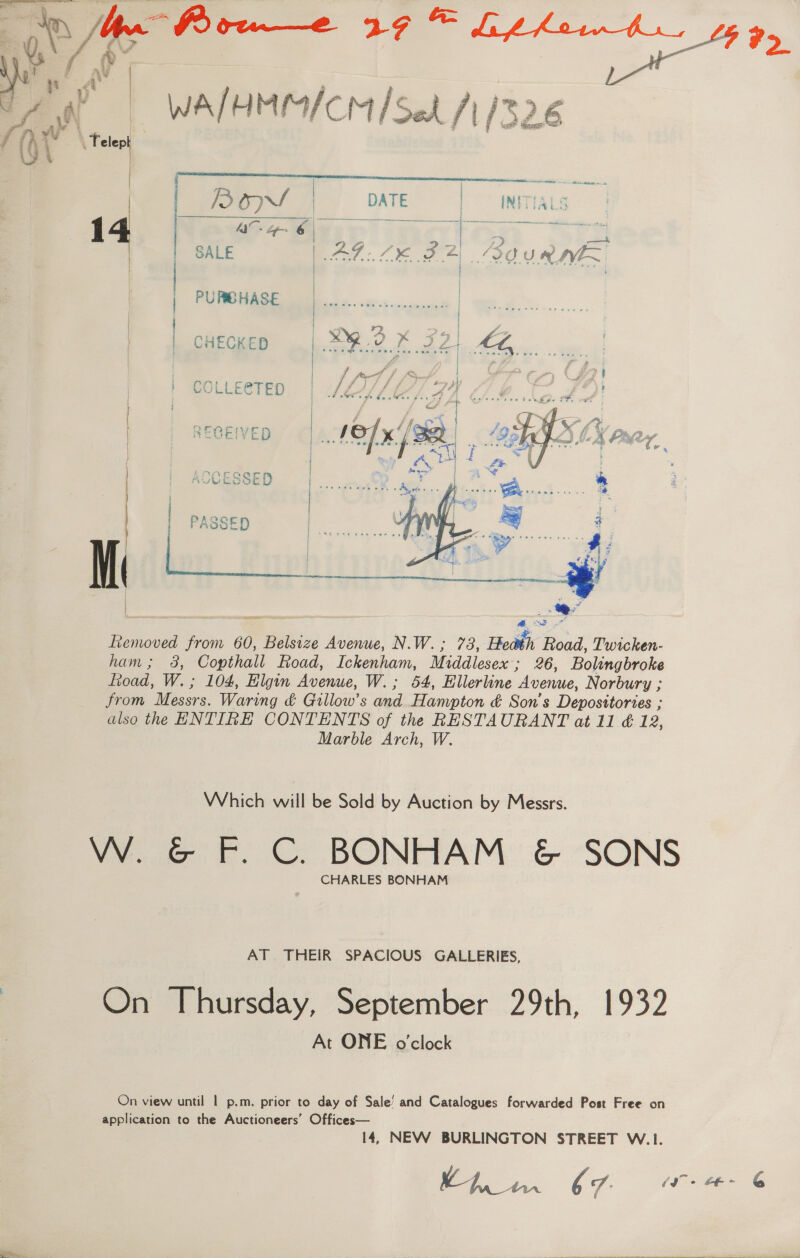 Mr Bourne 29th September 1932
WA/HMM/CM/Sal/1/326
Teleph
14
DATE INITIALS
SALE 29. IX. 32 BOURNE
PURCHASE
CHECKED
COLLECTED
RECEIVED
ACCESSED
PASSED
M
Removed from 60, Belsize Avenue, N.W. ; 73, Heath Road, Twicken-
ham ; 3, Copthall Road, Ickenham, Middlesex ; 26, Bolingbroke
Road, W. ; 104, Elgin Avenue, W. ; 54, Ellerline Avenue, Norbury ;
from Messrs. Waring & Gillow's and Hampton & Son's Depositories ;
also the ENTIRE CONTENTS of the RESTAURANT at 11 & 12,
Marble Arch, W.
Which will be Sold by Auction by Messrs.
W. & F. C. BONHAM & SONS
CHARLES BONHAM
AT THEIR SPACIOUS GALLERIES,
On Thursday, September 29th, 1932
At ONE o'clock
On view until 1 p.m. prior to day of Sale and Catalogues forwarded Post Free on
application to the Auctioneers' Offices—
14, NEW BURLINGTON STREET W.1.
67.